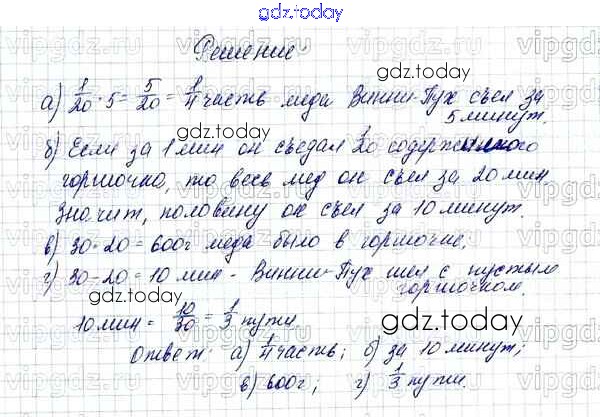 gdz.today
Решение
gdz.today
а) 1/20 · 5 = 5/20 = 1/4 часть меда Винни-Пух съел за
5 минут.
б) Если за 1 мин он съедал 1/20 содержимого
горшочка, то весь мед он съел за 20 мин
Значит, половину он съел за 10 минут.
в) 30·20 = 600г меда было в горшочке.
г) 30-20 = 10 мин - Винни-Пух шел с пустым
gdz.today
горшочком.
10 мин = 10/30 = 1/3 пути
gdz.today
Ответ: а) 1/4 часть; б) за 10 минут;
в) 600г; г) 1/3 пути.